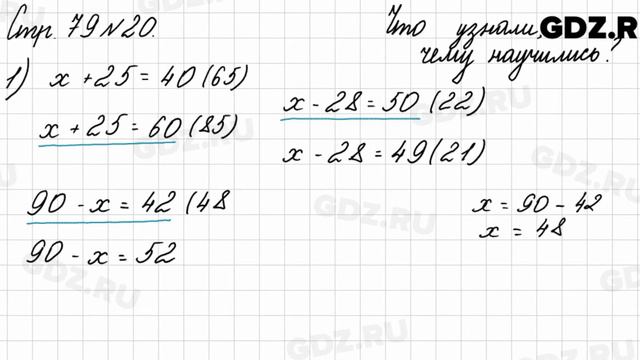 Стр. 79 N 20.
Что узнали,
чему научились?
GDZ.R
1) x + 25 = 40 (65)
x + 25 = 60 (85)
x - 28 = 50 (22)
x - 28 = 49 (21)
90 - x = 42 (48
90 - x = 52
x = 90 - 42
x = 48
GDZ.RU
GDZ.RU
GDZ.RU
GDZ.RU
GDZ.RU